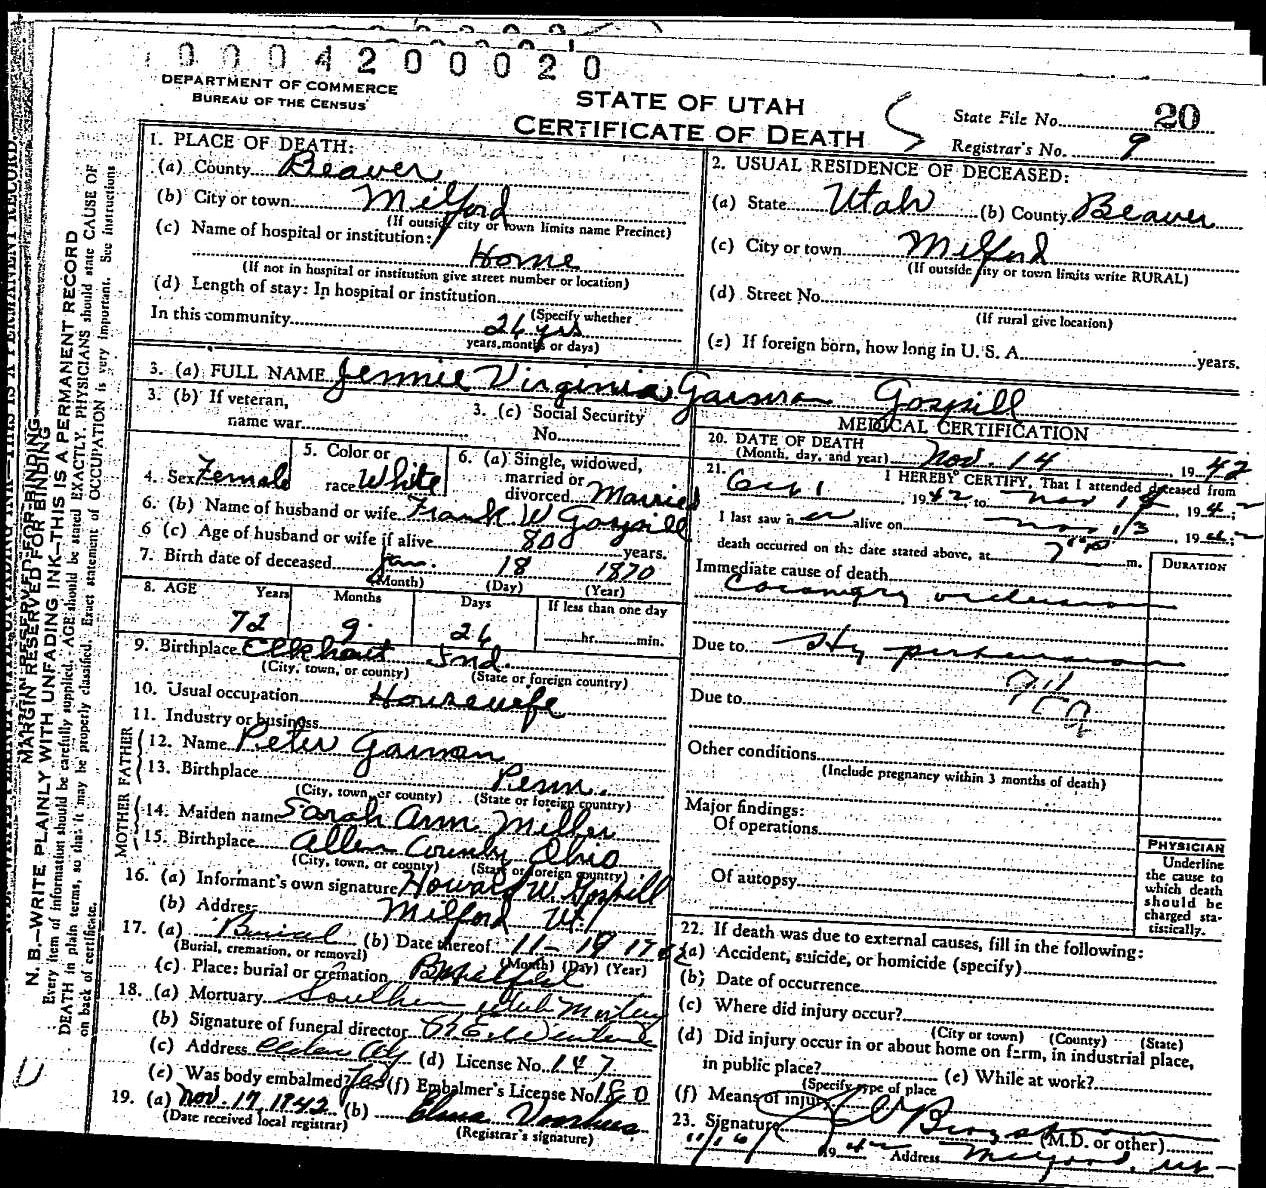 0004200020
DEPARTMENT OF COMMERCE
BUREAU OF THE CENSUS
STATE OF UTAH
CERTIFICATE OF DEATH
State File No. 20
Registrar's No. 9
1. PLACE OF DEATH:
(a) County Beaver
(b) City or town Milford
(If outside city or town limits name Precinct)
(c) Name of hospital or institution:
Home
(If not in hospital or institution give street number or location)
(d) Length of stay: In hospital or institution
(Specify whether
In this community 26 yrs
years, months or days)
2. USUAL RESIDENCE OF DECEASED:
(a) State Utah (b) County Beaver
(c) City or town Milford
(If outside city or town limits write RURAL)
(d) Street No.
(If rural give location)
(e) If foreign born, how long in U. S. A. years.
3. (a) FULL NAME Jennie Virginia Garman Gospill
3. (b) If veteran,
name war
3. (c) Social Security
No.
4. Sex Female
5. Color or
race White
6. (a) Single, widowed,
married or
divorced Married
6. (b) Name of husband or wife Frank W Gospill
6 (c) Age of husband or wife if alive 80 years.
7. Birth date of deceased Jan. 18 1870
(Month) (Day) (Year)
8. AGE Years Months Days If less than one day
72 9 26 hr. min.
9. Birthplace Elkhart Ind.
(City, town, or county) (State or foreign country)
10. Usual occupation Housewife
11. Industry or business
FATHER
12. Name Peter Garman
13. Birthplace Penn.
(City, town, or county) (State or foreign country)
MOTHER
14. Maiden name Sarah Ann Miller
15. Birthplace Allen County Ohio
(City, town, or county) (State or foreign country)
16. (a) Informant's own signature Howard W. Gospill
(b) Address Milford Ut.
17. (a) Burial (b) Date thereof 11-
(Burial, cremation, or removal) (Month) (Day) (Year)
(c) Place: burial or cremation
18. (a) Mortuary Southern Utah Mortuary
(b) Signature of funeral director
(c) Address Cedar City (d) License No. 147
(e) Was body embalmed? Yes (f) Embalmer's License No. 180
19. (a) Nov. 17 1942 (b) Elma Voorhees
(Date received local registrar) (Registrar's signature)
MEDICAL CERTIFICATION
20. DATE OF DEATH
(Month, day, and year) Nov. 14, 1942
21. I HEREBY CERTIFY, That I attended deceased from
Oct 1 1942, to Nov 1942;
I last saw her alive on Nov 13, 1942
death occurred on the date stated above, at 7 P m.
DURATION
Immediate cause of death
Coronary occlusion
Due to Hypertension
Due to
Other conditions
(Include pregnancy within 3 months of death)
Major findings:
Of operations
Of autopsy
PHYSICIAN
Underline
the cause to
which death
should be
charged sta-
tistically.
22. If death was due to external causes, fill in the following:
(a) Accident, suicide, or homicide (specify)
(b) Date of occurrence
(c) Where did injury occur?
(City or town) (County) (State)
(d) Did injury occur in or about home on farm, in industrial place,
in public place? (e) While at work?
(Specify type of place
(f) Means of injury
23. Signature (M.D. or other)
11/16/ 1942 Address Milford, Ut
MARGIN RESERVED FOR BINDING
N. B.—WRITE PLAINLY WITH UNFADING INK—THIS IS A PERMANENT RECORD
Every item of information should be carefully supplied. AGE should be stated EXACTLY. PHYSICIANS should state CAUSE OF
DEATH in plain terms, so that it may be properly classified. Exact statement of OCCUPATION is very important. See instructions
on back of certificate.